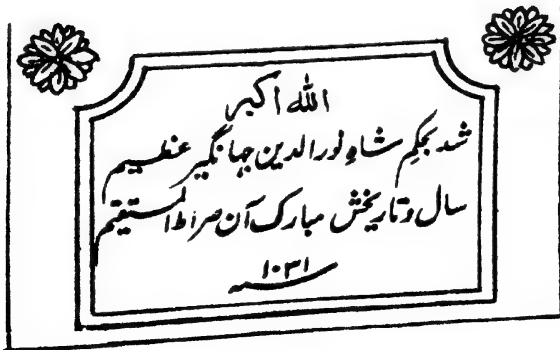 الله اکبر
شد بحکمِ شاهِ نورالدین جهانگیر عظیم
سال و تاریخش مبارک آن صراط المستقیم
سنه ۱۰۳۱